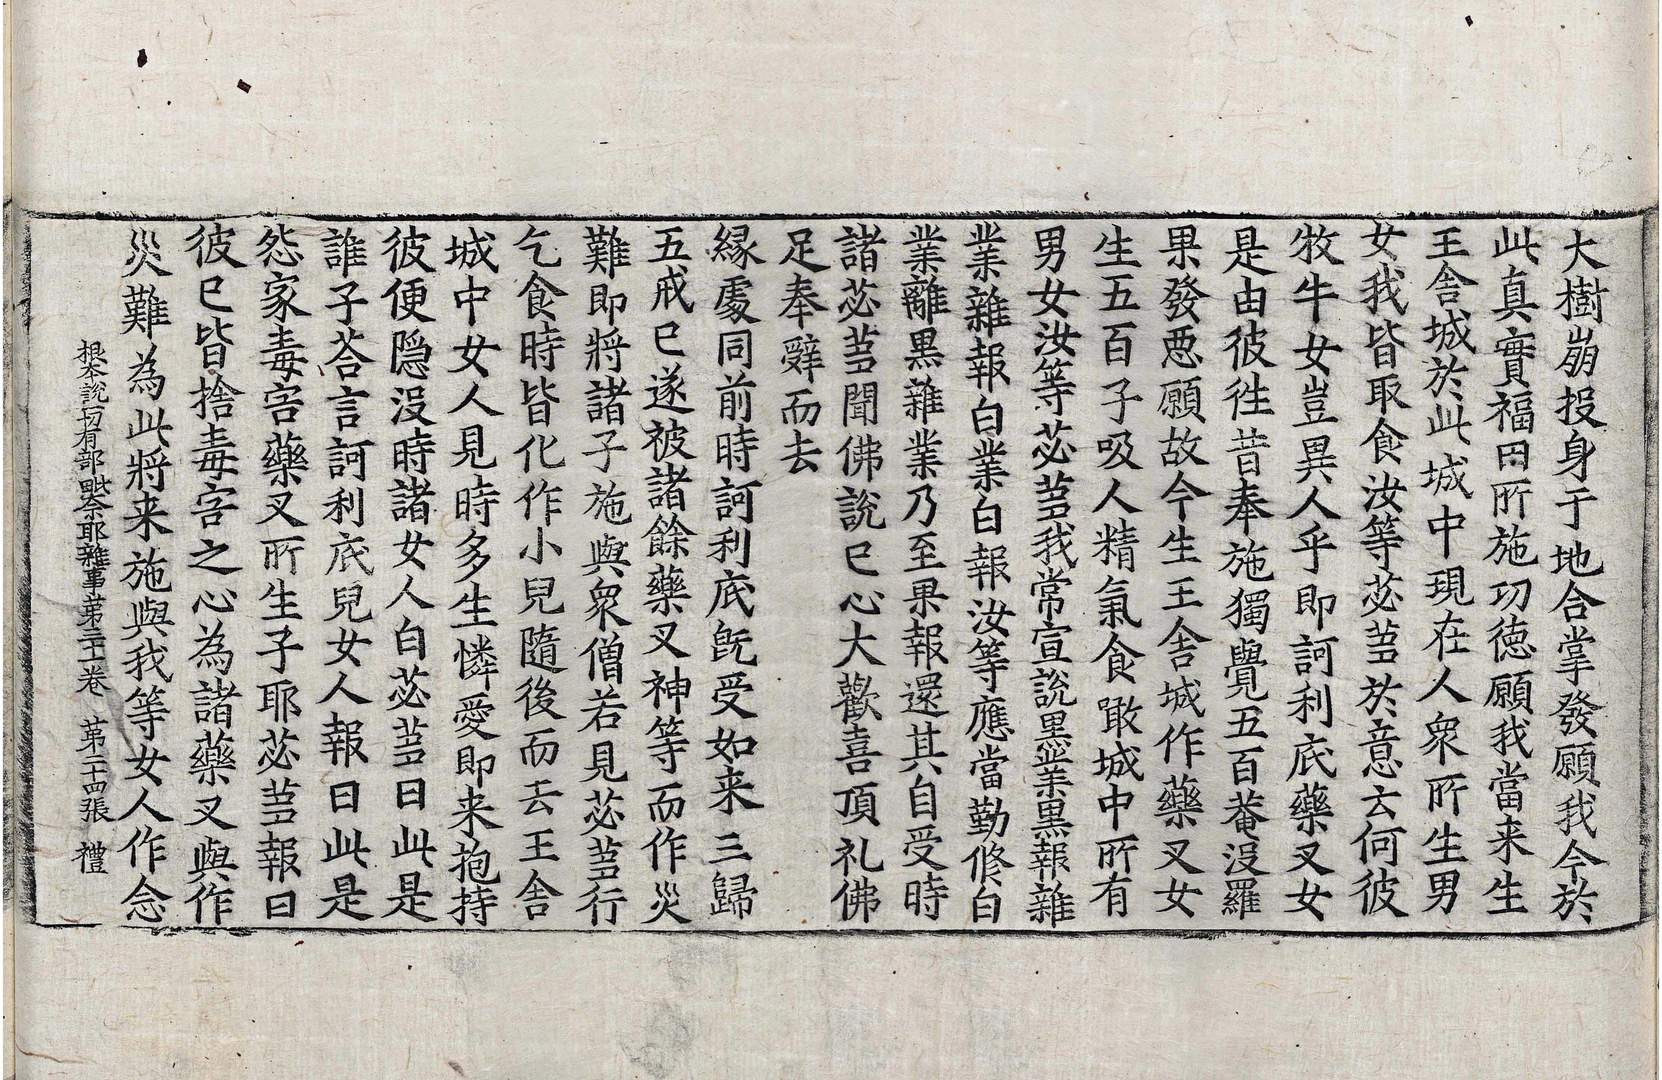 大樹崩投身于地合掌發願我今於
此真實福田所施功徳願我當来生
王舍城於此城中現在人衆所生男
女我皆取食汝等苾芻於意云何彼
牧牛女豈異人乎即訶利底藥叉女
是由彼徃昔奉施獨覺五百菴没羅
果發惡願故今生王舍城作藥叉女
生五百子吸人精氣食噉城中所有
男女汝等苾芻我常宣說黒業黒報雜
業雜報白業白報汝等應當勤修白
業離黒雜業乃至果報還其自受時
諸苾芻聞佛說已心大歡喜頂礼佛
足奉辭而去
縁處同前時訶利底旣受如来三歸
五戒已遂被諸餘藥叉神等而作災
難即將諸子施與衆僧若見苾芻行
乞食時皆化作小兒隨後而去王舍
城中女人見時多生憐愛即来抱持
彼便隐没時諸女人白苾芻曰此是
誰子荅言訶利底兒女人報曰此是
怨家毒害藥叉所生子耶苾芻報曰
彼已皆捨毒害之心為諸藥叉與作
災難為此將来施與我等女人作念
根本說一切有部毗奈耶雜事第三十一卷　第二十四張　禮